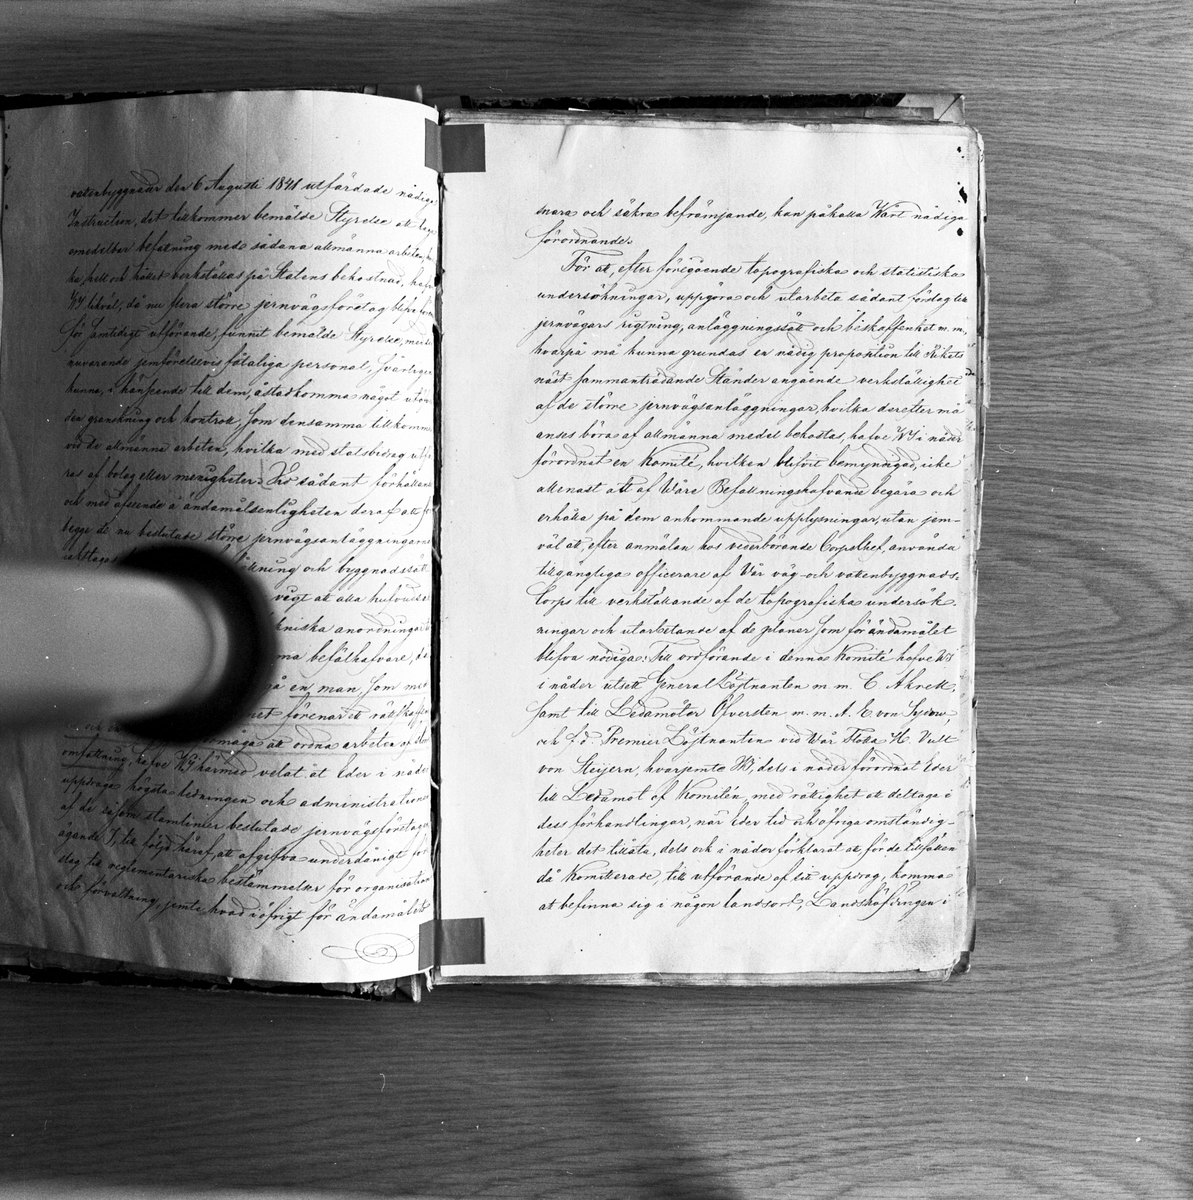 vattenbyggnader den 6 Augusti 1841 utfärdade nådiga
Instruction, det tillkommer bemälde Styrelse att taga
omedelbar befattning med sådana allmänna arbeten,
helt och hållet verkställas på Statens bekostnad, hafva
WJ likväl, då nu flera större jernvägsföretag blifva
för samtidigt utförande, funnit bemälde Styrelse, med
nuvarande jemförelsevis fåtaliga personal, svårligen
kunna, i hänseende till dem, åstadkomma något utöfver
den granskning och kontroll, som densamma tillkommer
vid de allmänna arbeten, hvilka med statsbidrag
ras af bolag eller menigheter. Vid sådant förhållande
och med afseende å ändamålsenligheten deraf att för
begge de nu beslutade större jernvägsanläggningarne
och byggnadssätt
vigt att alla hufvud
tekniska anordningar
befälhafvare,
på en man, som med
förenar ett rättskaffens
förmåga att ordna arbeten af
omfattning, hafve WJ härmed velat åt Eder i nåder
uppdraga högsta ledningen och administrationen
af de såsom stamlinier beslutade jernvägsföretagen
ägande I, till följd häraf, att afgifva underdånigt för-
slag till reglementariska bestämmelser för organisation
och förvaltning, jemte hvad i öfrigt för ändamålets
snara och säkra befrämjande, kan påkalla Wårt nådiga
förordnande.
För att, efter föregående topografiska och statistiska
undersökningar, uppgöra och utarbeta sådant förslag till
jernvägars rigtning, anläggningssätt och beskaffenhet m. m.,
hvarpå må kunna grundas en nådig proposition till Rikets
näst sammanträdande Ständer angående verkställighet
af de större jernvägsanläggningar, hvilka derefter må
anses böra af allmänna medel bekostas, hafve WJ i nåder
förordnat en Komité, hvilken blifvit bemyndigad, icke
allenast att af Wåre Befallningshafvande begära och
erhålla på dem ankommande upplysningar, utan jem-
väl att, efter anmälan hos vederbörande Corpschef, använda
tillgängliga officerare af Vår väg- och vattenbyggnads-
Corps till verkställande af de topografiska undersök-
ningar och utarbetande af de planer som för ändamålet
blifva nödiga: Till ordförande i denna Komité hafve WJ
i nåder utsett General Löjtnanten m. m. C. Akrell,
samt till Ledamöter Öfversten m. m. A. E. von Sydow,
och f. d. Premier Löjtnanten vid Wår Flotta H. Vult
von Steijern, hvarjemte WJ, dels i nåder förordnat Eder
till Ledamot af Komitén, med rättighet att deltaga i
dess förhandlingar, när Eder tid och öfriga omständig-
heter det tillåta, dels ock i nåder förklarat att för de tillfällen
då Komitterade, till utförande af sitt uppdrag, komma
att befinna sig i någon landsort, Landshöfdingen i